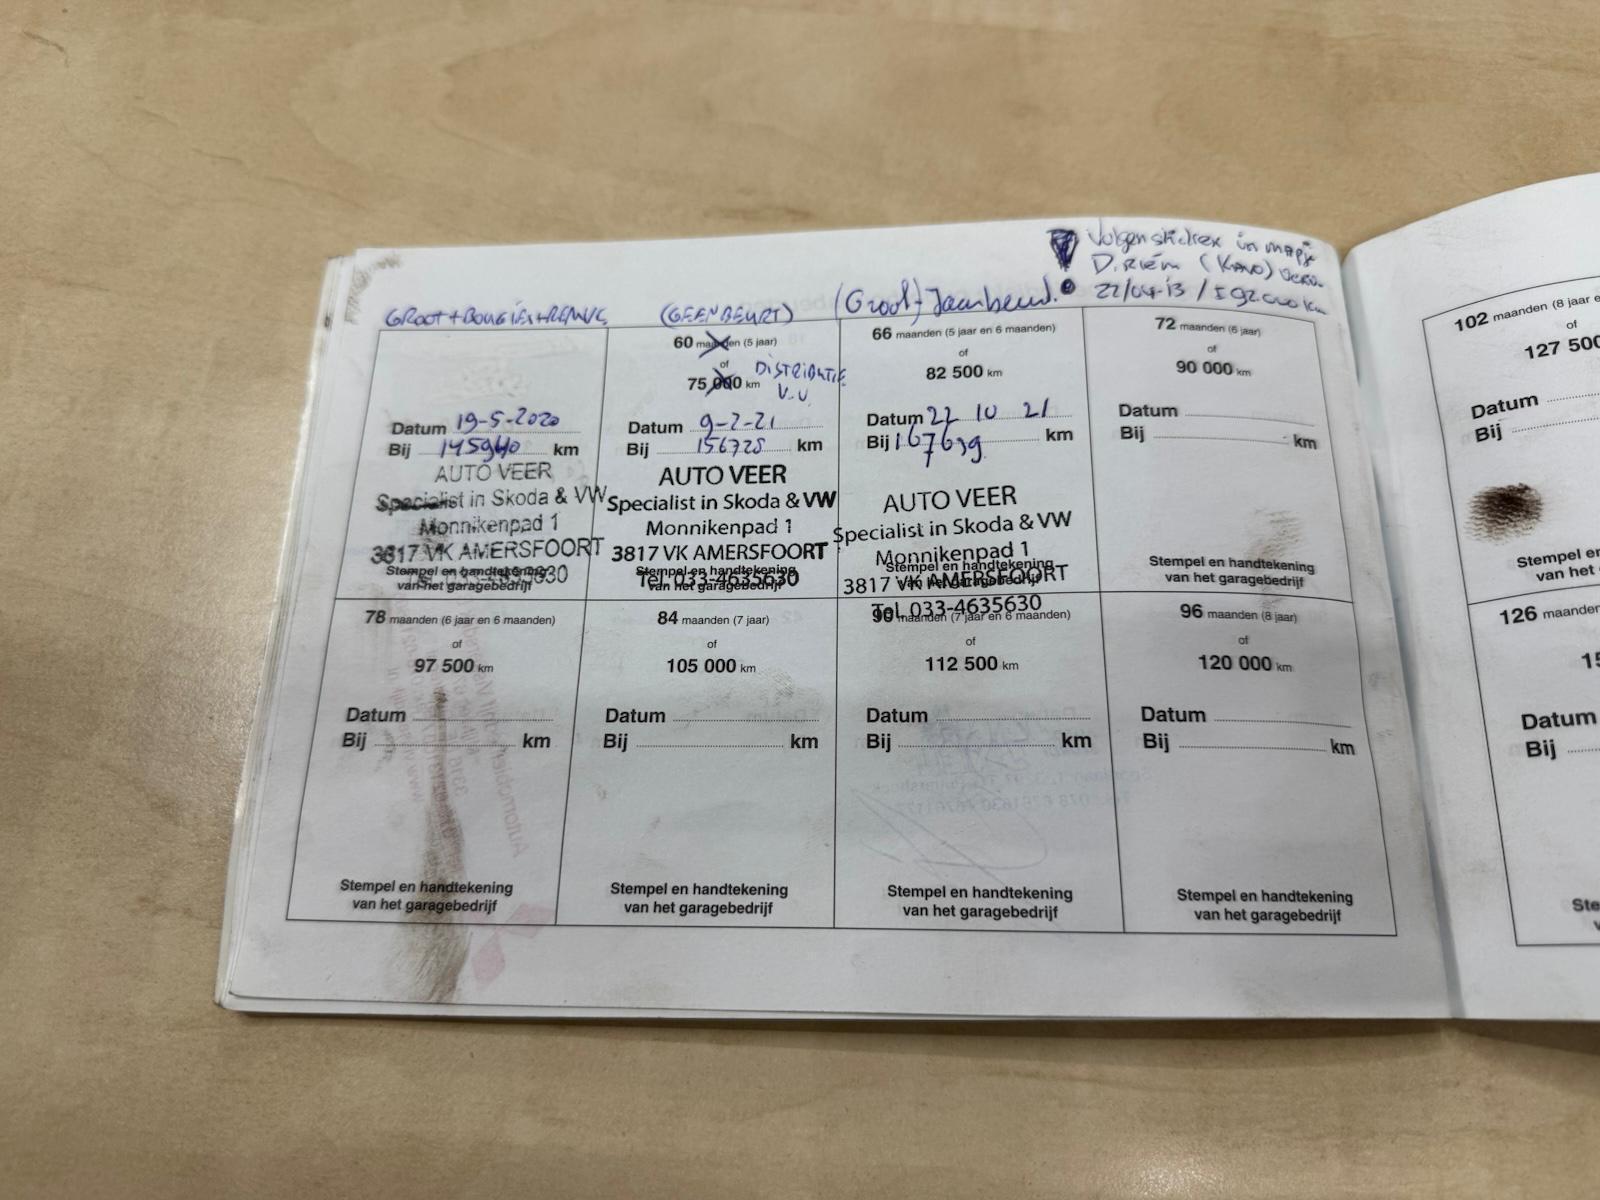 Volgens sticker in mapje
D.riem (
22/04-13 /
GROOT + BOUGIES +
(GEEN BEURT)
(Groot) Jaarbeurt.
19-5-2020
Datum
Bij 145940 km
AUTO VEER
Specialist in Skoda & VW
Monnikenpad 1
3817 VK AMERSFOORT
Stempel en handtekening
van het garagebedrijf
60 maanden (5 jaar)
of
75 000 km
DISTRIBUTIE
V.V.
Datum 9-2-21
Bij 156728 km
AUTO VEER
Specialist in Skoda & VW
Monnikenpad 1
3817 VK AMERSFOORT
Tel. 033-4635630
Stempel en handtekening
van het garagebedrijf
66 maanden (5 jaar en 6 maanden)
of
82 500 km
Datum 22 10 21
Bij 167639 km
AUTO VEER
Specialist in Skoda & VW
Monnikenpad 1
3817 VK AMERSFOORT
Tel. 033-4635630
Stempel en handtekening
van het garagebedrijf
72 maanden (6 jaar)
of
90 000 km
Datum
Bij km
Stempel en handtekening
van het garagebedrijf
78 maanden (6 jaar en 6 maanden)
of
97 500 km
Datum
Bij km
Stempel en handtekening
van het garagebedrijf
84 maanden (7 jaar)
of
105 000 km
Datum
Bij km
Stempel en handtekening
van het garagebedrijf
90 maanden (7 jaar en 6 maanden)
of
112 500 km
Datum
Bij km
Stempel en handtekening
van het garagebedrijf
96 maanden (8 jaar)
of
120 000 km
Datum
Bij km
Stempel en handtekening
van het garagebedrijf
102 maanden (8 jaar e
of
127 500
Datum
Bij
Stempel en
van het
126 maanden
Datum
Bij